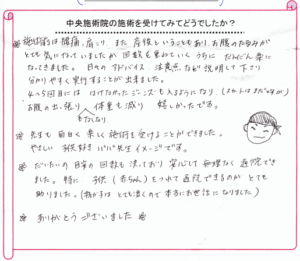 中央施術院の施術を受けてみてどうでしたか？
施術前は腰痛、肩こり、また産後ということもあり、お腹のたるみが
とても気になっていましたが回数を重ねていくうちにだんだん楽に
なってきました。日々のアドバイス 注意点など説明して下さり
分かりやすく実行することが出来ました。
4〜5回目には はけなかったジーンズも入るようになり
お腹の出っ張りもなくなり、体重も減り 嬉しかったです。
先生も面白く楽しく施術を受けることができました。
やさしい 子供好き パパ先生イメージです。
だいたいの目安の回数も決っており安心して無理なく通院でき
ました。特に 子供（赤ちゃん）をつれて通院できるのが とても
助りました。（我が子は とても凄くので本当にお世話になりました）
ありがとうございました